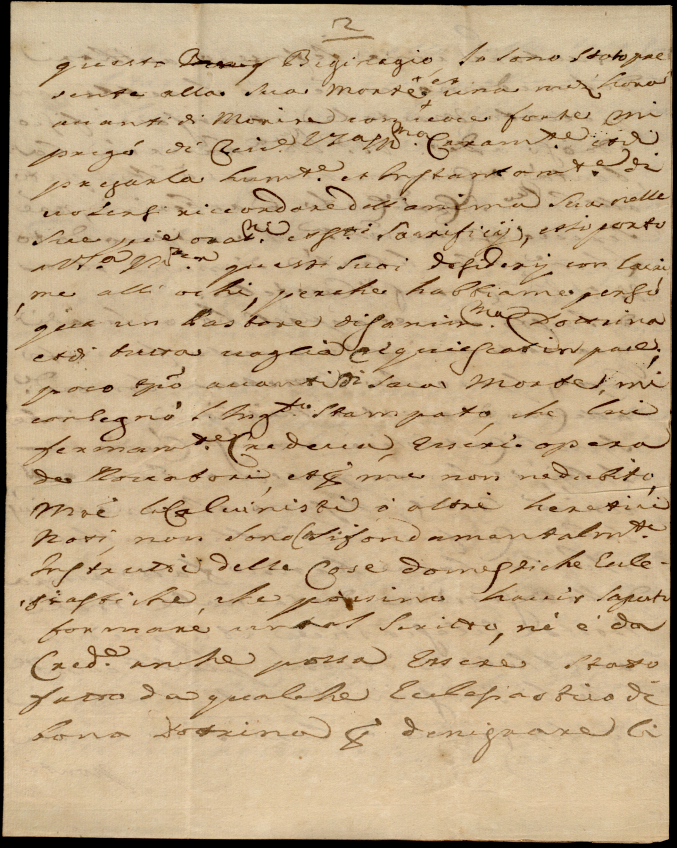 2
questo Bigi Io sono stato pre
sente alla sua Morte, et una mez hora
avanti di Morire con voce forte mi
pregò di Caramte, et di
pregarla humte. et Instantamte. di
volersi riccordare dell'anima Sua nelle
Sue pie oraₙⁱ. et Sti Sacrificij, et io porto
a V. questi Suoi desiderij con lacri
me alli ochi, perche habbiamo perso
qua un Pastore di somma Dottrina
et di tutta voglia Requiescat in pace,
poco tpō avanti di Sua Morte, mi
consegnò Stampato, che lui
fermamte. Credeva, Essere opera
de et p me non ne dubito,
Mà li Calvinisti ò altri heretici
non sono Così fondamentalmte
Instrutti delle Cose domestiche Eccle-
siastiche, che possino haver saputo
formare un tal Scritto, nè è da
Credre. anche possa Essere Stato
fatto da qualche Eclesiastico di
bona Dotrina p denigrare li